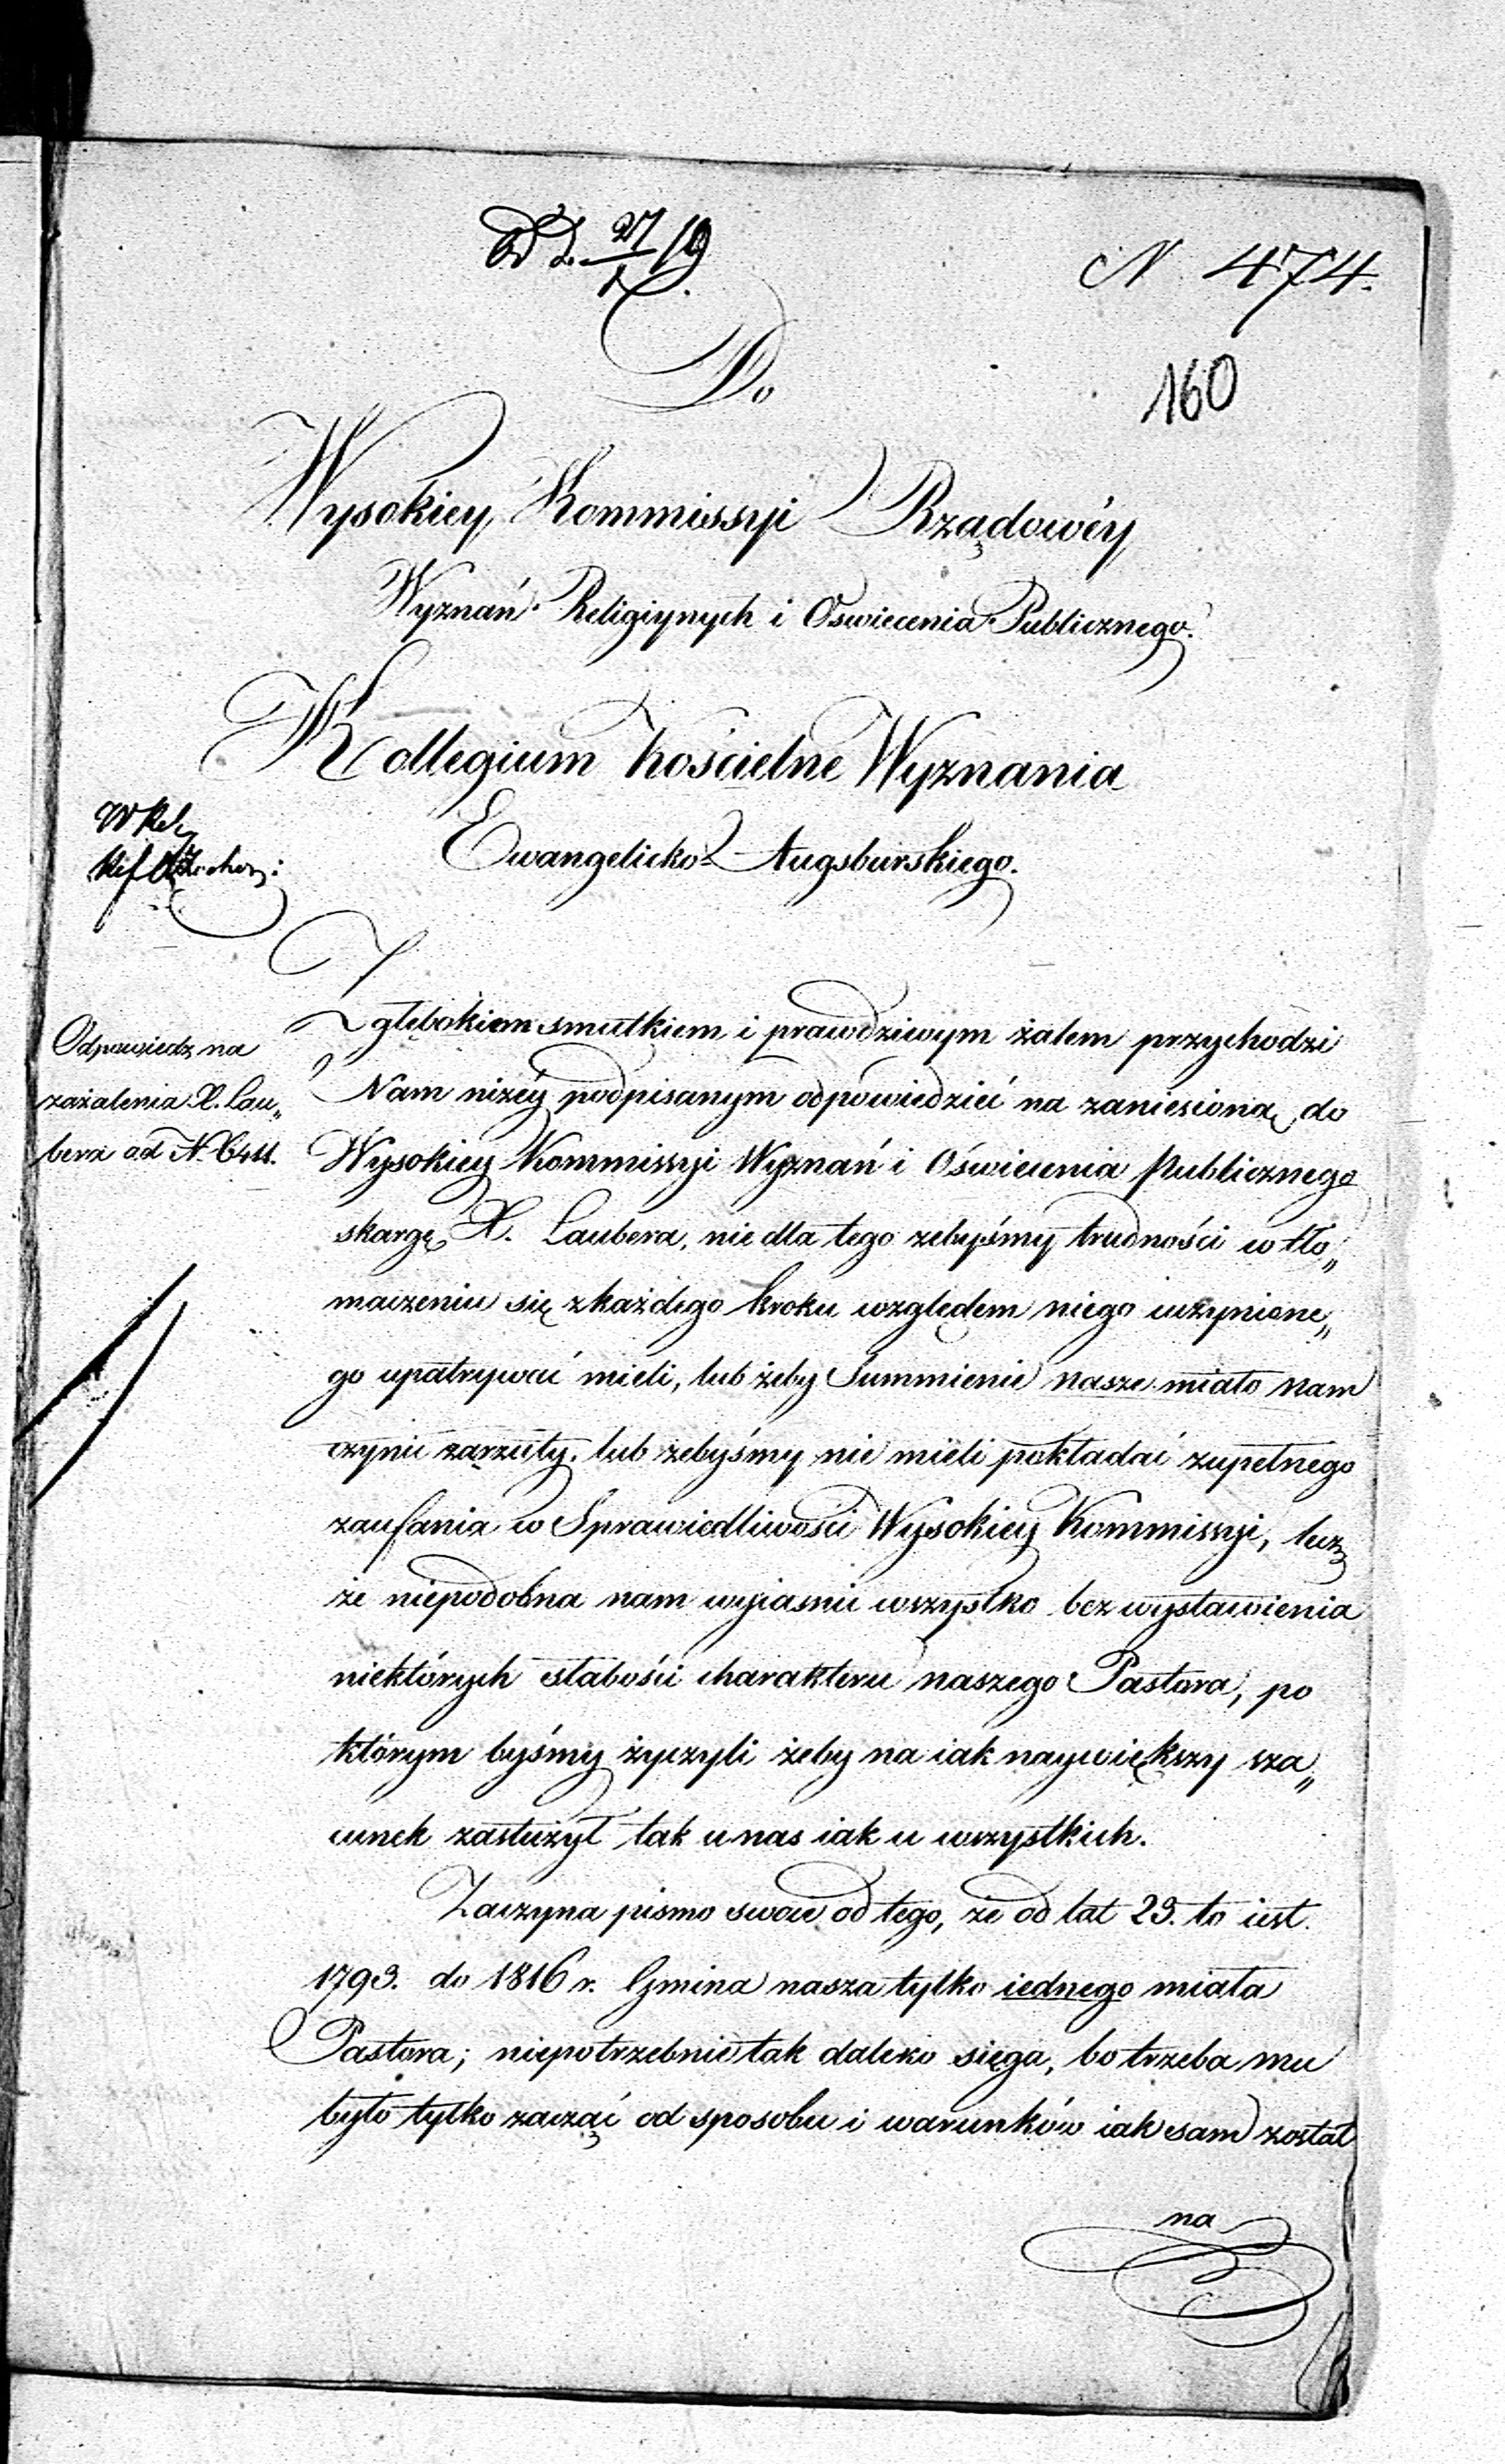 N 474.
160
Do
Wysokiey Kommissyi Rządowéy
Wyznań Religiynych i Oswiecenia Publicznego.
Kollegium Kościelne Wyznania
Ewangelicko-Augsburskiego.
Odpowiedz na
zażalenia X. Lau„
bera ad N.
Z głębokiem smutkiem i prawdziwym żalem przychodzi
Nam niżéy podpisanym odpowiedzieć na zaniesioną do
Wysokiey Kommissyi Wyznań i Oświecenia Publicznego
skargę X. Laubera, nie dla tego żebyśmy trudności w tło„
maczeniu się z każdego kroku względem niego uczynione„
go upatrywać mieli, lub żeby Summienie nasze miało nam
czynić zarzuty, lub żebyśmy nie mieli pokładać zupełnego
zaufania w Sprawiedliwości Wysokiey Kommissyi, lecz
że niepodobna nam wyiasnić wszystko bez wystawienia
niektórych słabości charakteru naszego Pastora, po
którym byśmy życzyli żeby na iak naywiększy sza„
cunek zasłużył tak u nas iak u wszystkich.
Zaczyna pismo swoie od tego, że od lat 23. to iest
1793. do 1816 r. Gmina nasza tylko iednego miała
Pastora; niepotrzebnie tak daleko sięga, bo trzeba mu
było tylko zacząć od sposobu i warunków iak sam został
na